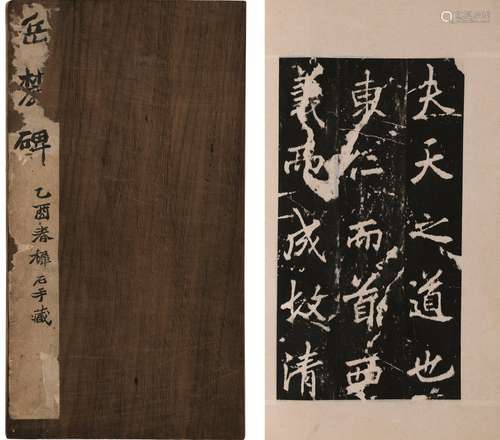 岳麓碑
乙酉春石手藏
夫天之道也
東仁而首西
義而成故清